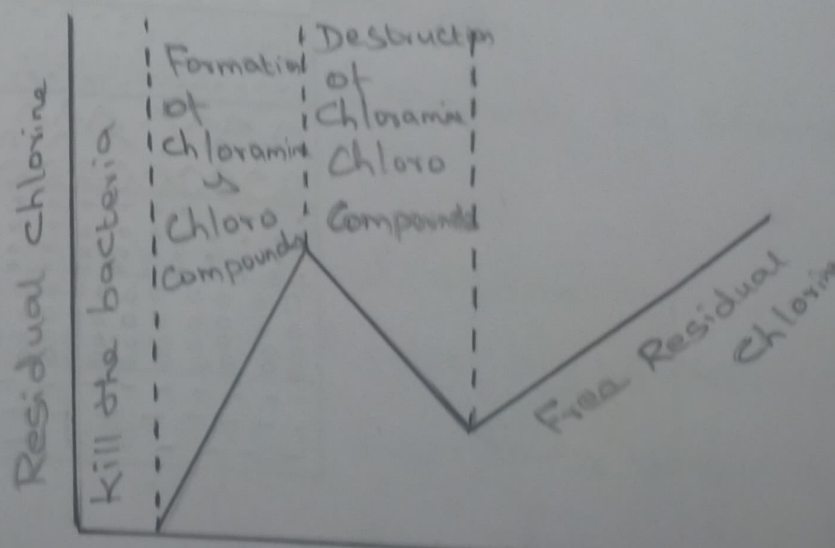 Residual Chlorine
Kill the bacteria
Formation
of
Chloramine
y
Chloro
Compounds
Destruction
of
Chloramine
Chloro
Compounds
Free Residual
Chlorine